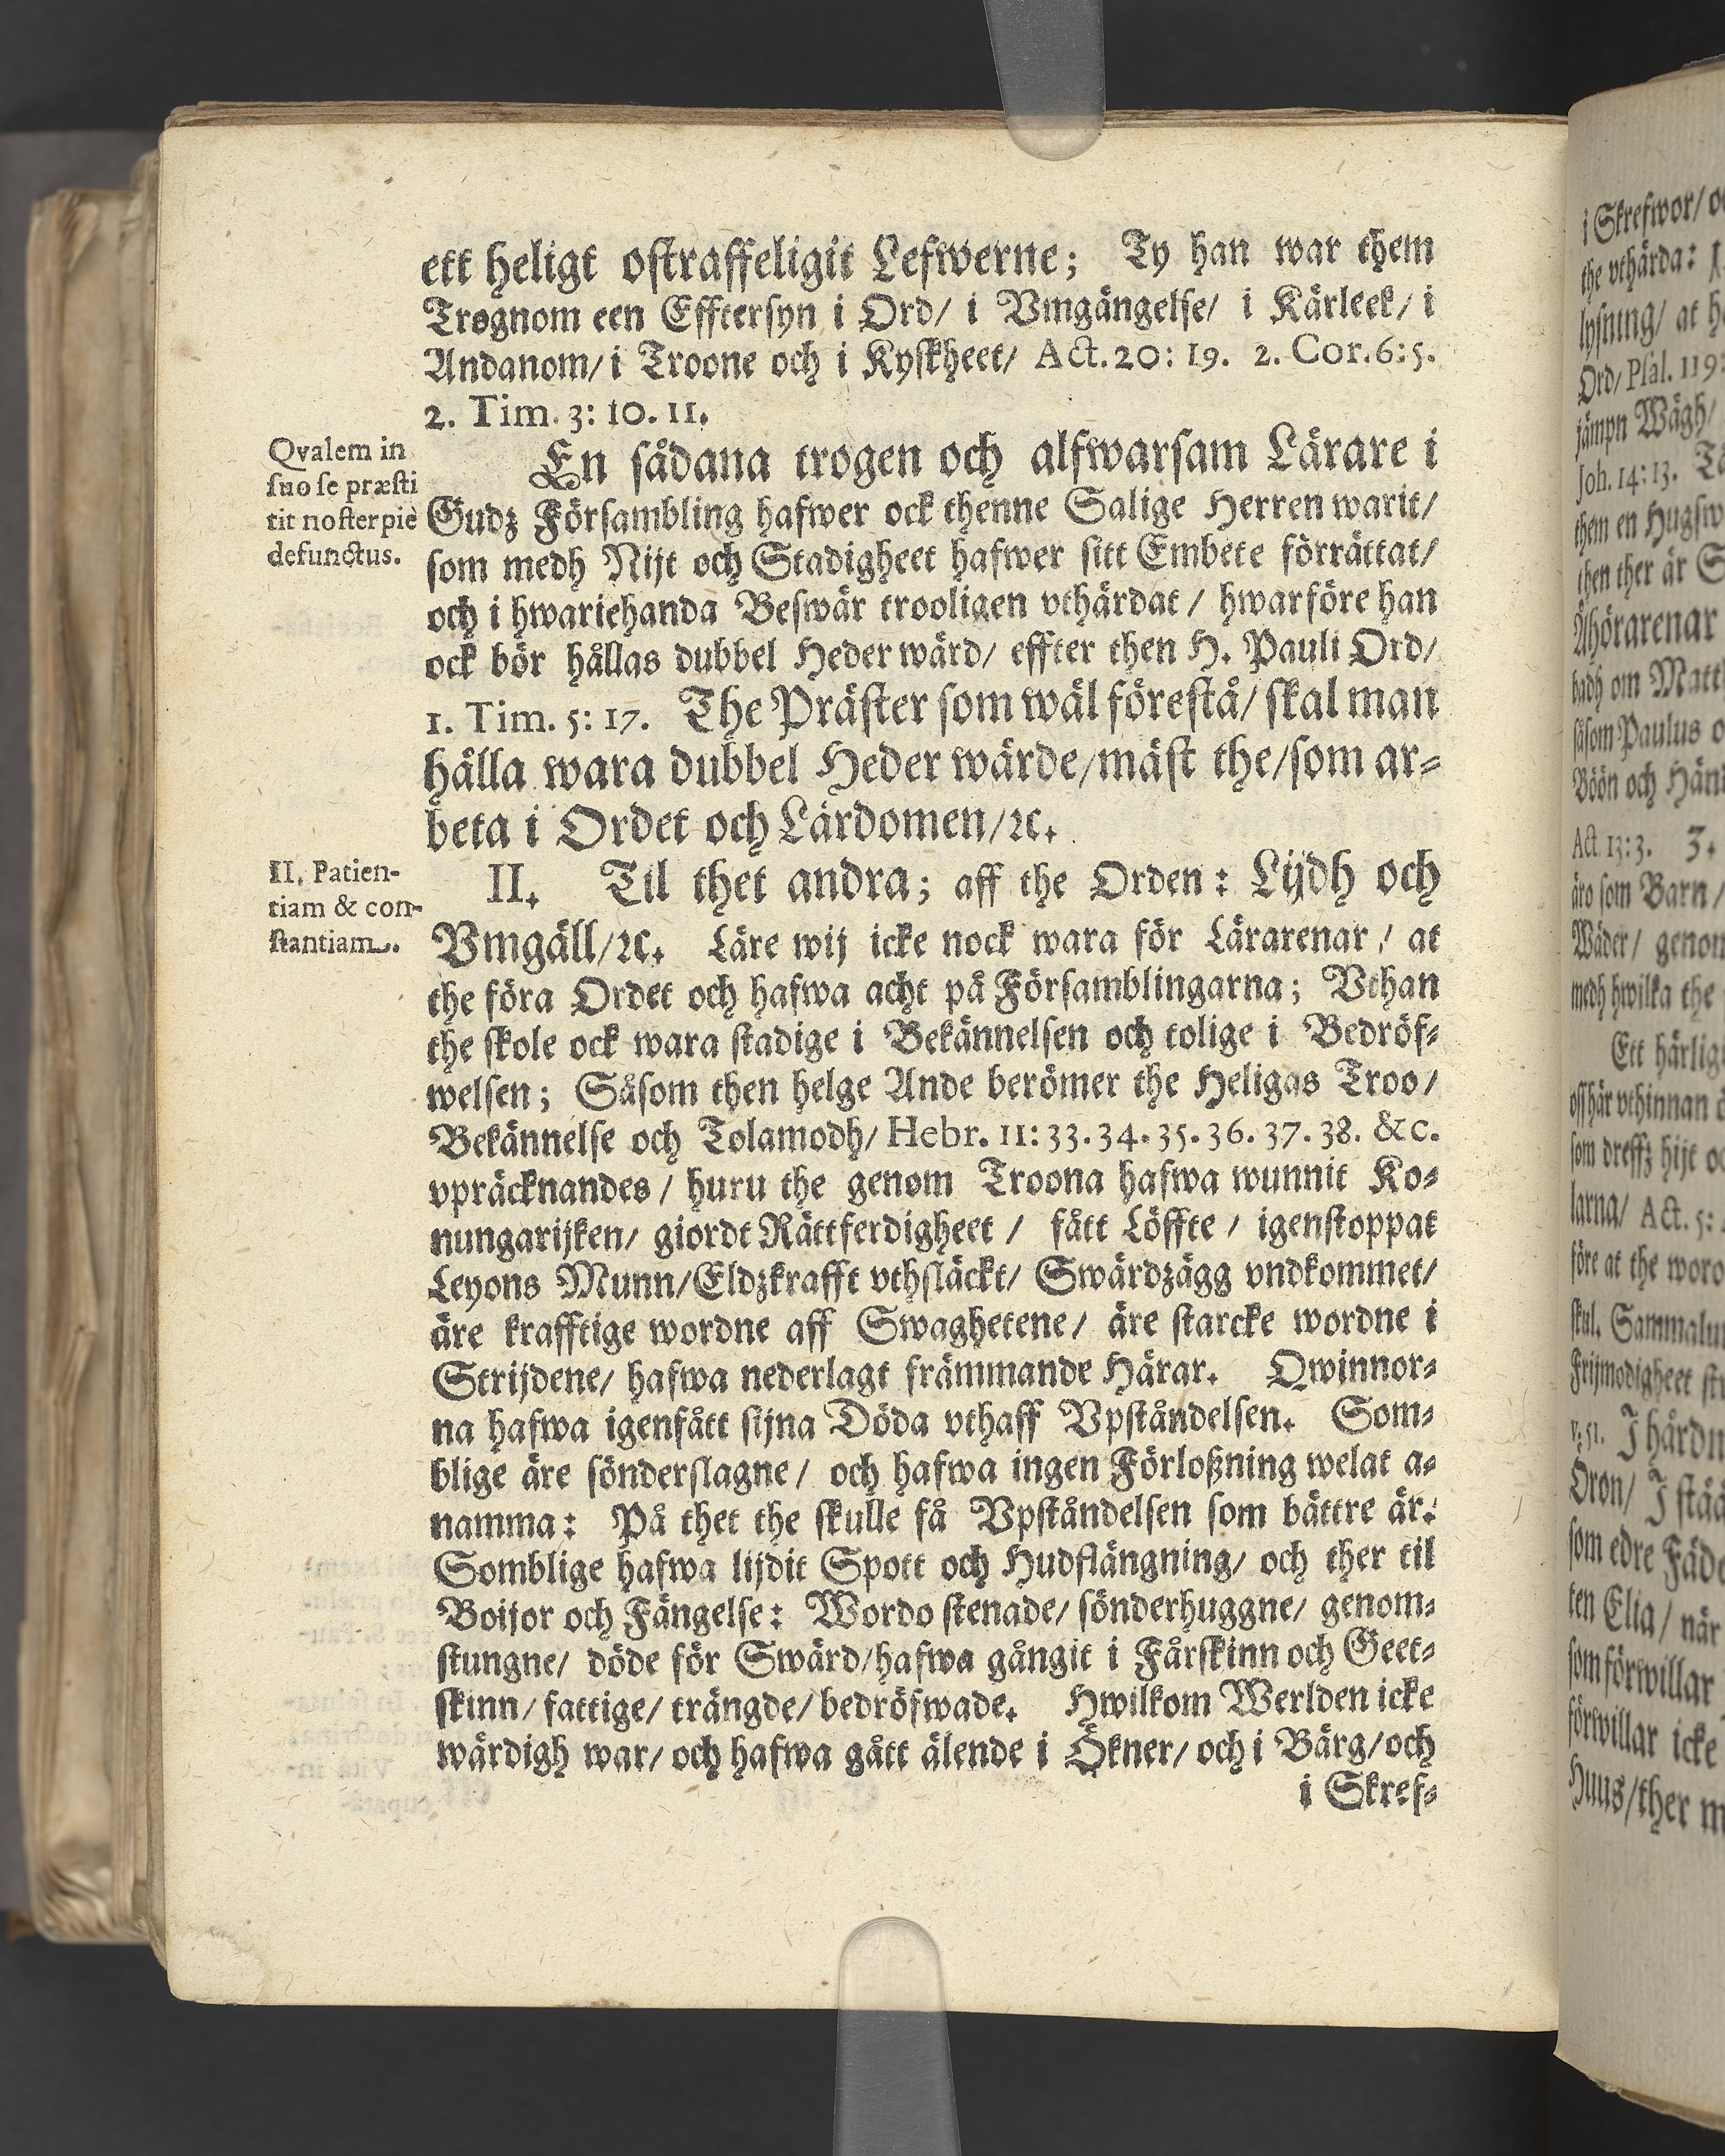 ett heligt ostraffeligit Lefwerne; Ty han war them
Trognom een Efftersyn i Ord/ i Vmgängelse/ i Kärleek/ i
Andanom/ i Troone och i Kyskheet/ Act. 20: 19. 2. Cor. 6: 5.
2. Tim. 3: 10. 11.
Qvalem in
suo se præsti
tit noster piè
defunctus.
En sådana trogen och alfwarsam Lärare i
Gudz Försambling hafwer ock thenne Salige Herren warit/
som medh Nijt och Stadigheet hafwer sitt Embete förrättat/
och i hwariehanda Beswär trooligen vthärdat / hwarföre han
ock bör hållas dubbel Heder wärd/ effter then H. Pauli Ord/
1. Tim. 5: 17. The Präster som wäl förestå/ skal man
hålla wara dubbel Heder wärde/ mäst the/ som ar-
beta i Ordet och Lärdomen/ ꝛc.
II. Patien-
tiam & con-
stantiam.
II. Til thet andra; aff the Orden: Lijdh och
Vmgäll/ ꝛc. Läre wij icke nock wara för Lärarenar / at
the föra Ordet och hafwa acht på Församblingarna; Vthan
the skole ock wara stadige i Bekännelsen och tolige i Bedröf-
welsen; Såsom then helge Ande berömer the Heligas Troo/
Bekännelse och Tolamodh/ Hebr. 11: 33. 34. 35. 36. 37. 38. &c.
vpräcknandes / huru the genom Troona hafwa wunnit Ko-
nungarijken/ giordt Rättferdigheet / fått Löffte / igenstoppat
Leyons Munn/ Eldzkrafft vthsläckt/ Swärdzägg vndkommet/
äre krafftige wordne aff Swaghetene/ äre starcke wordne i
Strijdene/ hafwa nederlagt främmande Härar. Qwinnor-
na hafwa igenfått sijna Döda vthaff Vpståndelsen. Som-
blige äre sönderslagne/ och hafwa ingen Förloßning welat a-
namma: På thet the skulle få Vpståndelsen som bättre är:
Somblige hafwa lijdit Spott och Hudflängning/ och ther til
Boijor och Fängelse: Wordo stenade/ sönderhuggne/ genom-
stungne/ döde för Swärd/ hafwa gångit i Fårskinn och Geet-
skinn/ fattige/ trängde/ bedröfwade. Hwilkom Werlden icke
wärdigh war/ och hafwa gått älende i Ökner/ och i Bärg/ och
i Skref-
i Skrefwor/
the vthärda:
lysning/ at
Ord/ Psal. 119:
jämpn Wägh/
Joh. 14: 13.
them en
then ther är
Åhörarenar
badh om
såsom Paulus
Böön och
Act. 13: 3. 3.
äro som Barn/
Wäder/
medh hwilka the
Ett
som hijt
larna/ Act. 5:
före at the woro
skul.
Frijmodigheet
v. 51. J
Öron/ J
som edre
ten Elia/ när
som förwillar
förwillar icke
Huus/ ther